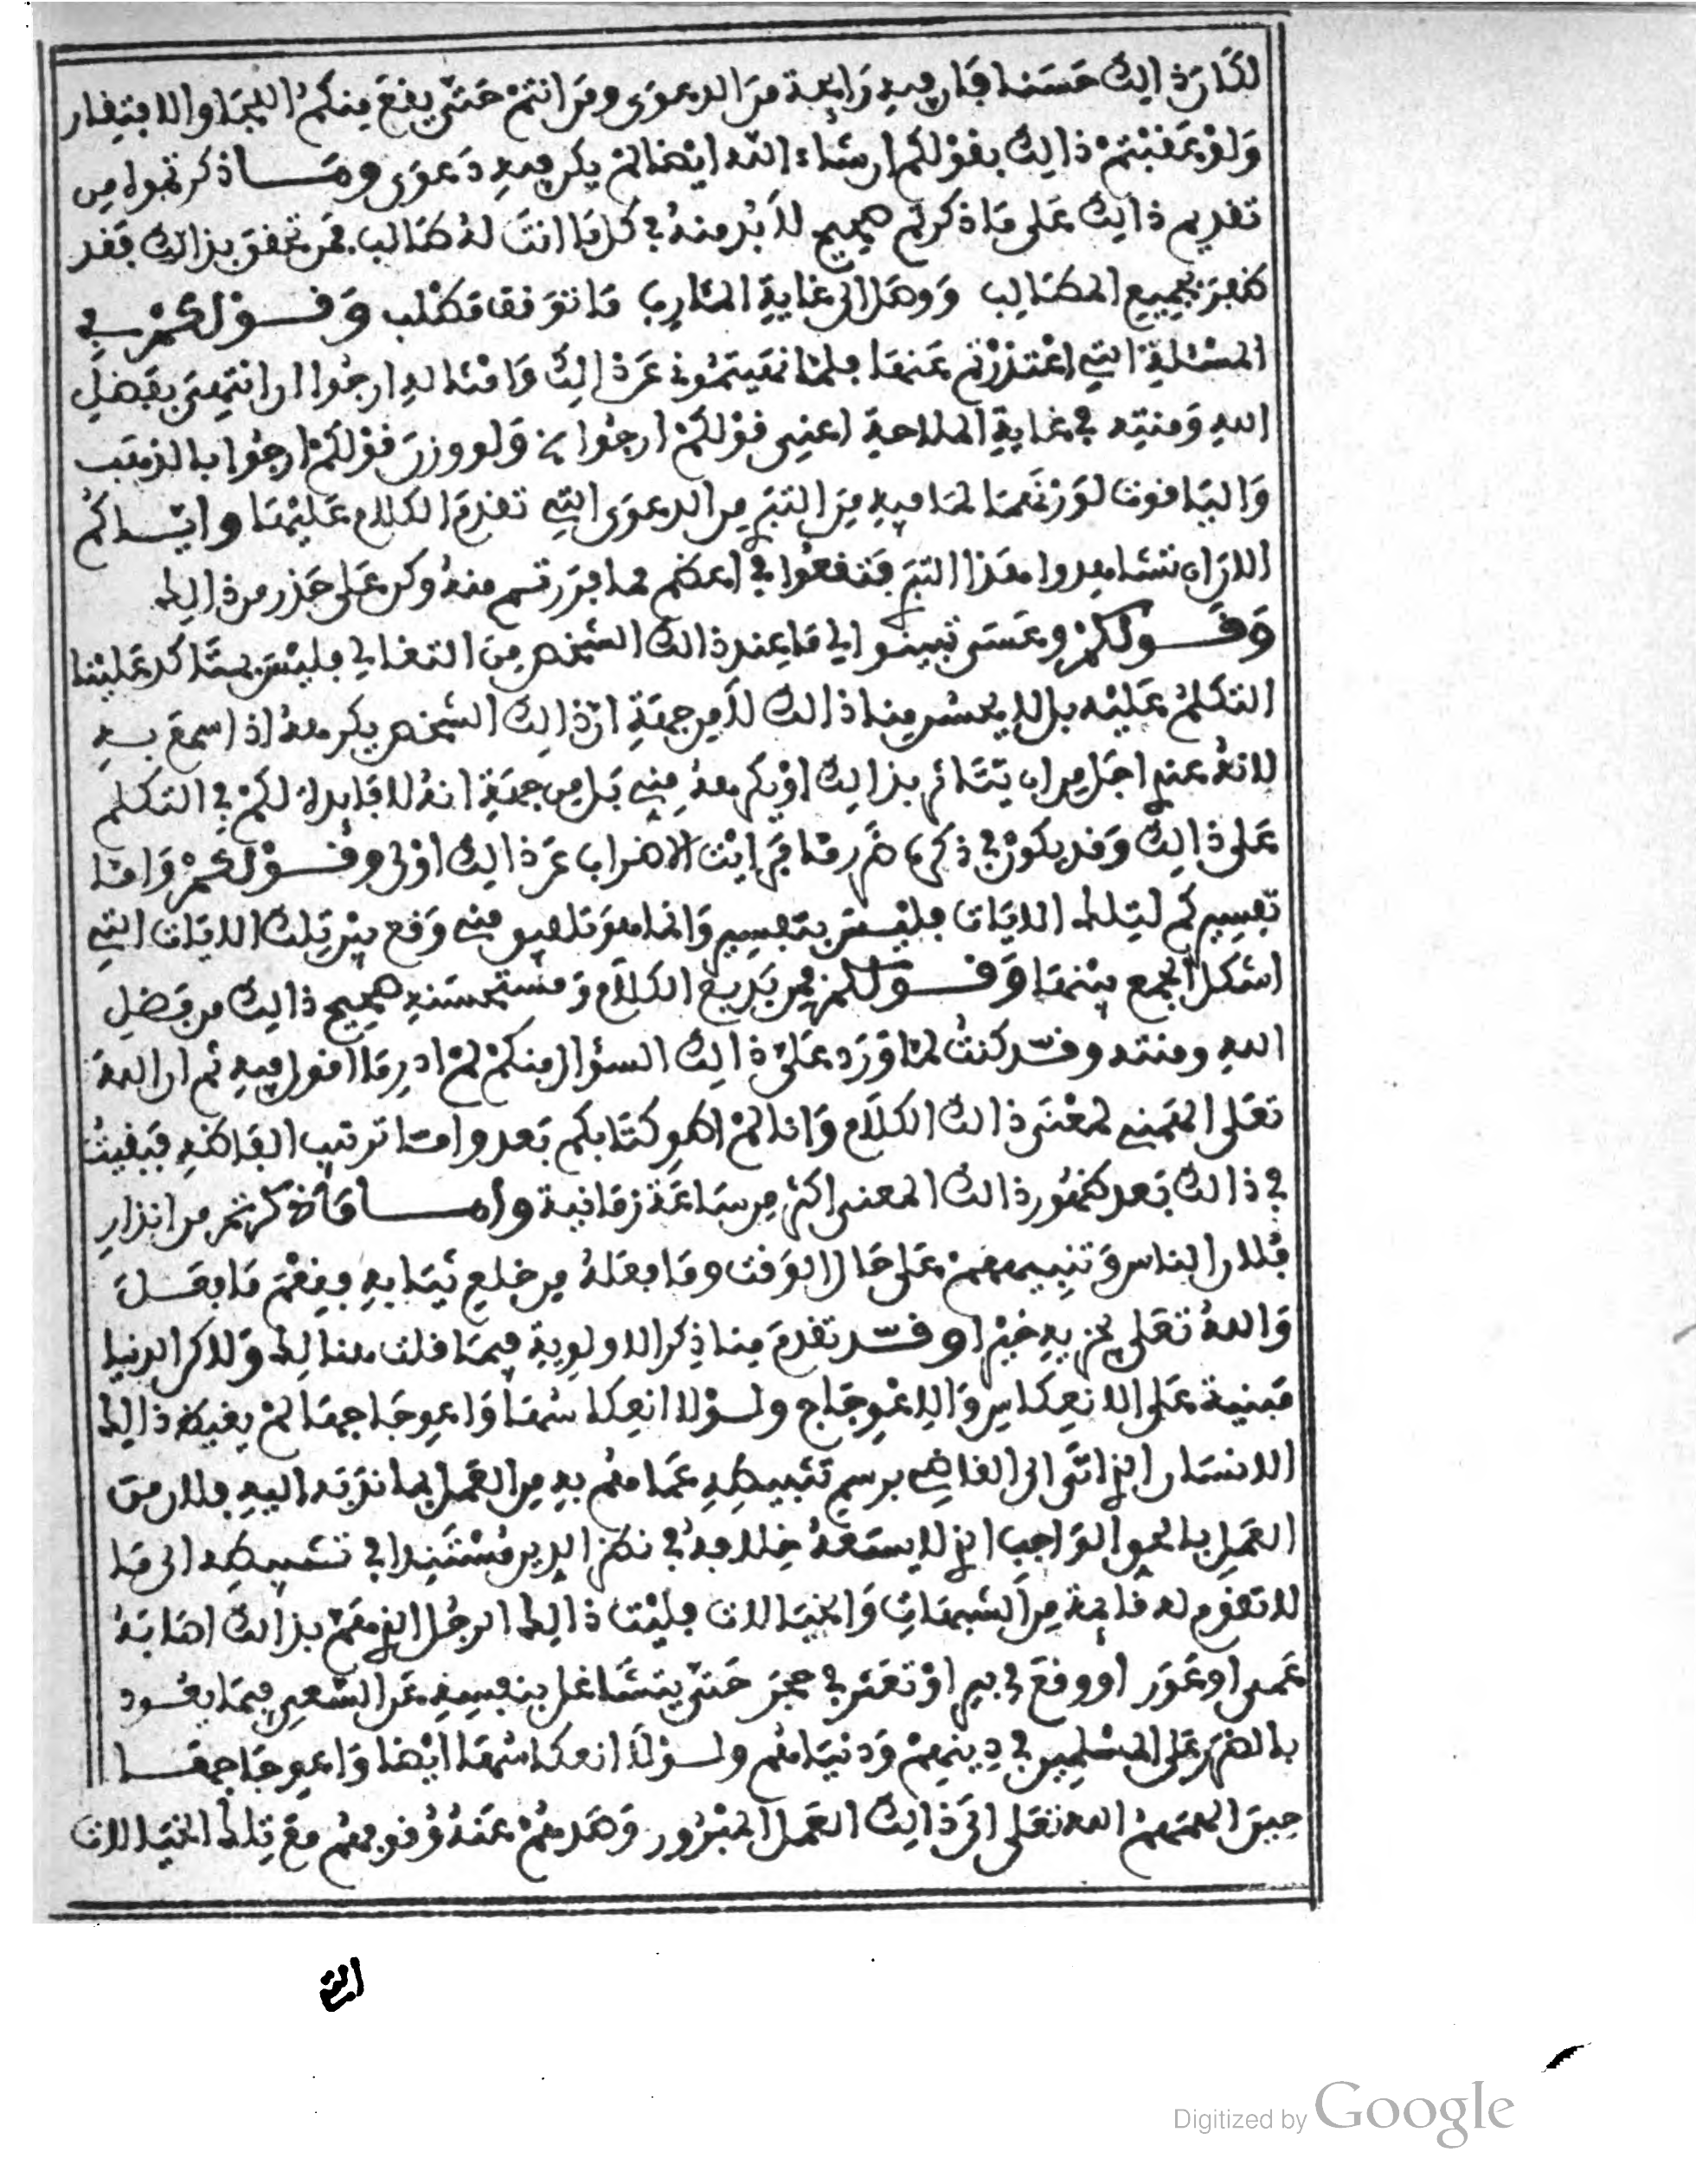 لكان ذالك حسنا فان فيه رايحة من الدعوى ومن انتم حتى يقع منكم اللجا والافتقار
ولو عقبتم ذالك بقولكم ان شاء الله ايضا لم يكن فيه دعوى وما ذكرتموه من
تقديم ذالك على ما ذكرتم صحيح لا بد منه في كل ما انت له طالب فمن تحقق بذالك فقد
ظفر بجميع المطالب ووصل الى غاية المئارب ما توقف مطلب وقولكم في
المسئلة التي اعتذرتم عنها فلما نهيتموني عن ذالك وامثاله ارجوا ان انتهي بفضل
الله ومنته في غاية الملاحة اعني قولكم ارجوا ولو وزن قولكم ارجوا بالذهب
والياقوت لوزنهما لما فيه من التبري من الدعوى التي تقدم الكلام عليها واياكم
الان ان تشاهدوا هذا التبري فتقعوا في اعظم مما فررتم منه وكن على حذر من ذالك
وقولكم وعسى تبينوا لي ما عند ذالك الشخص من التغالي فليس يتاكد علينا
التكلم عليه بل لا يحسن منا ذالك لا من جهة ان ذالك الشخص يكرهه اذا سمع به
لانه عندي اجل من ان يتاثر بذالك او يكرهه مني بل من جهة انه لا فايدة لكم في التكلم
على ذالك وقد يكون في ذكره ضرر ما فرايت الاضراب عن ذالك اولى وقولكم واما
تفسيركم لتلك الايات فليس بتفسير وانما هو تلفيق مني وقع بين تلك الايات التي
اشكل الجمع بينها وقولكم من بديع الكلام ومستحسنه صحيح ذالك من فضل
الله ومنته وقد كنت لما ورد علي ذالك السؤال منكم لم ادر ما اقول فيه ثم ان الله
تعلى الهمني لمعنى ذالك الكلام وانا لم اطو كتابكم بعد واما ترتيب الفاظه فبقيت
في ذالك بعد ظهور ذالك المعنى اكثر من ساعة زمانية واما ما ذكرتم من انذار
فلان الناس وتنبيههم على حال الوقت وما فعله من خلع ثيابه فنعم ما فعل
والله تعلى يجزيه خيرا وقد تقدم منا ذكر الاولوية فيما قلت هنالك ولاكن الدنيا
مبنية على الانعكاس والاعوجاج ولولا انعكاسها واعوجاجها لم يغيظ ذالك
الانسان الذي اتى الى القاضي برسم تثبيطه عما هم به من العمل بما ندبته اليه فلان من
العمل بالحق الواجب الذي لا يسعه خلافه في نظر الدين مستندا في تثبيطه الى ما
لا تقوم له قايمة من الشبهات والخيالات فليت ذالك الرجل الذي هم بذالك اصابه
عمى او عور او وقع في بير او تعثر في حجر حتى يتشاغل بنفسه عن السعي فيما يعود
بالضرر على المسلمين في دينهم ودنياهم ولولا انعكاسها ايضا واعوجاجها
حين الهمهم الله تعلى الى ذالك العمل المبرور وصدهم عنه وقوفهم مع تلك الخيالات
التي
Digitized by Google